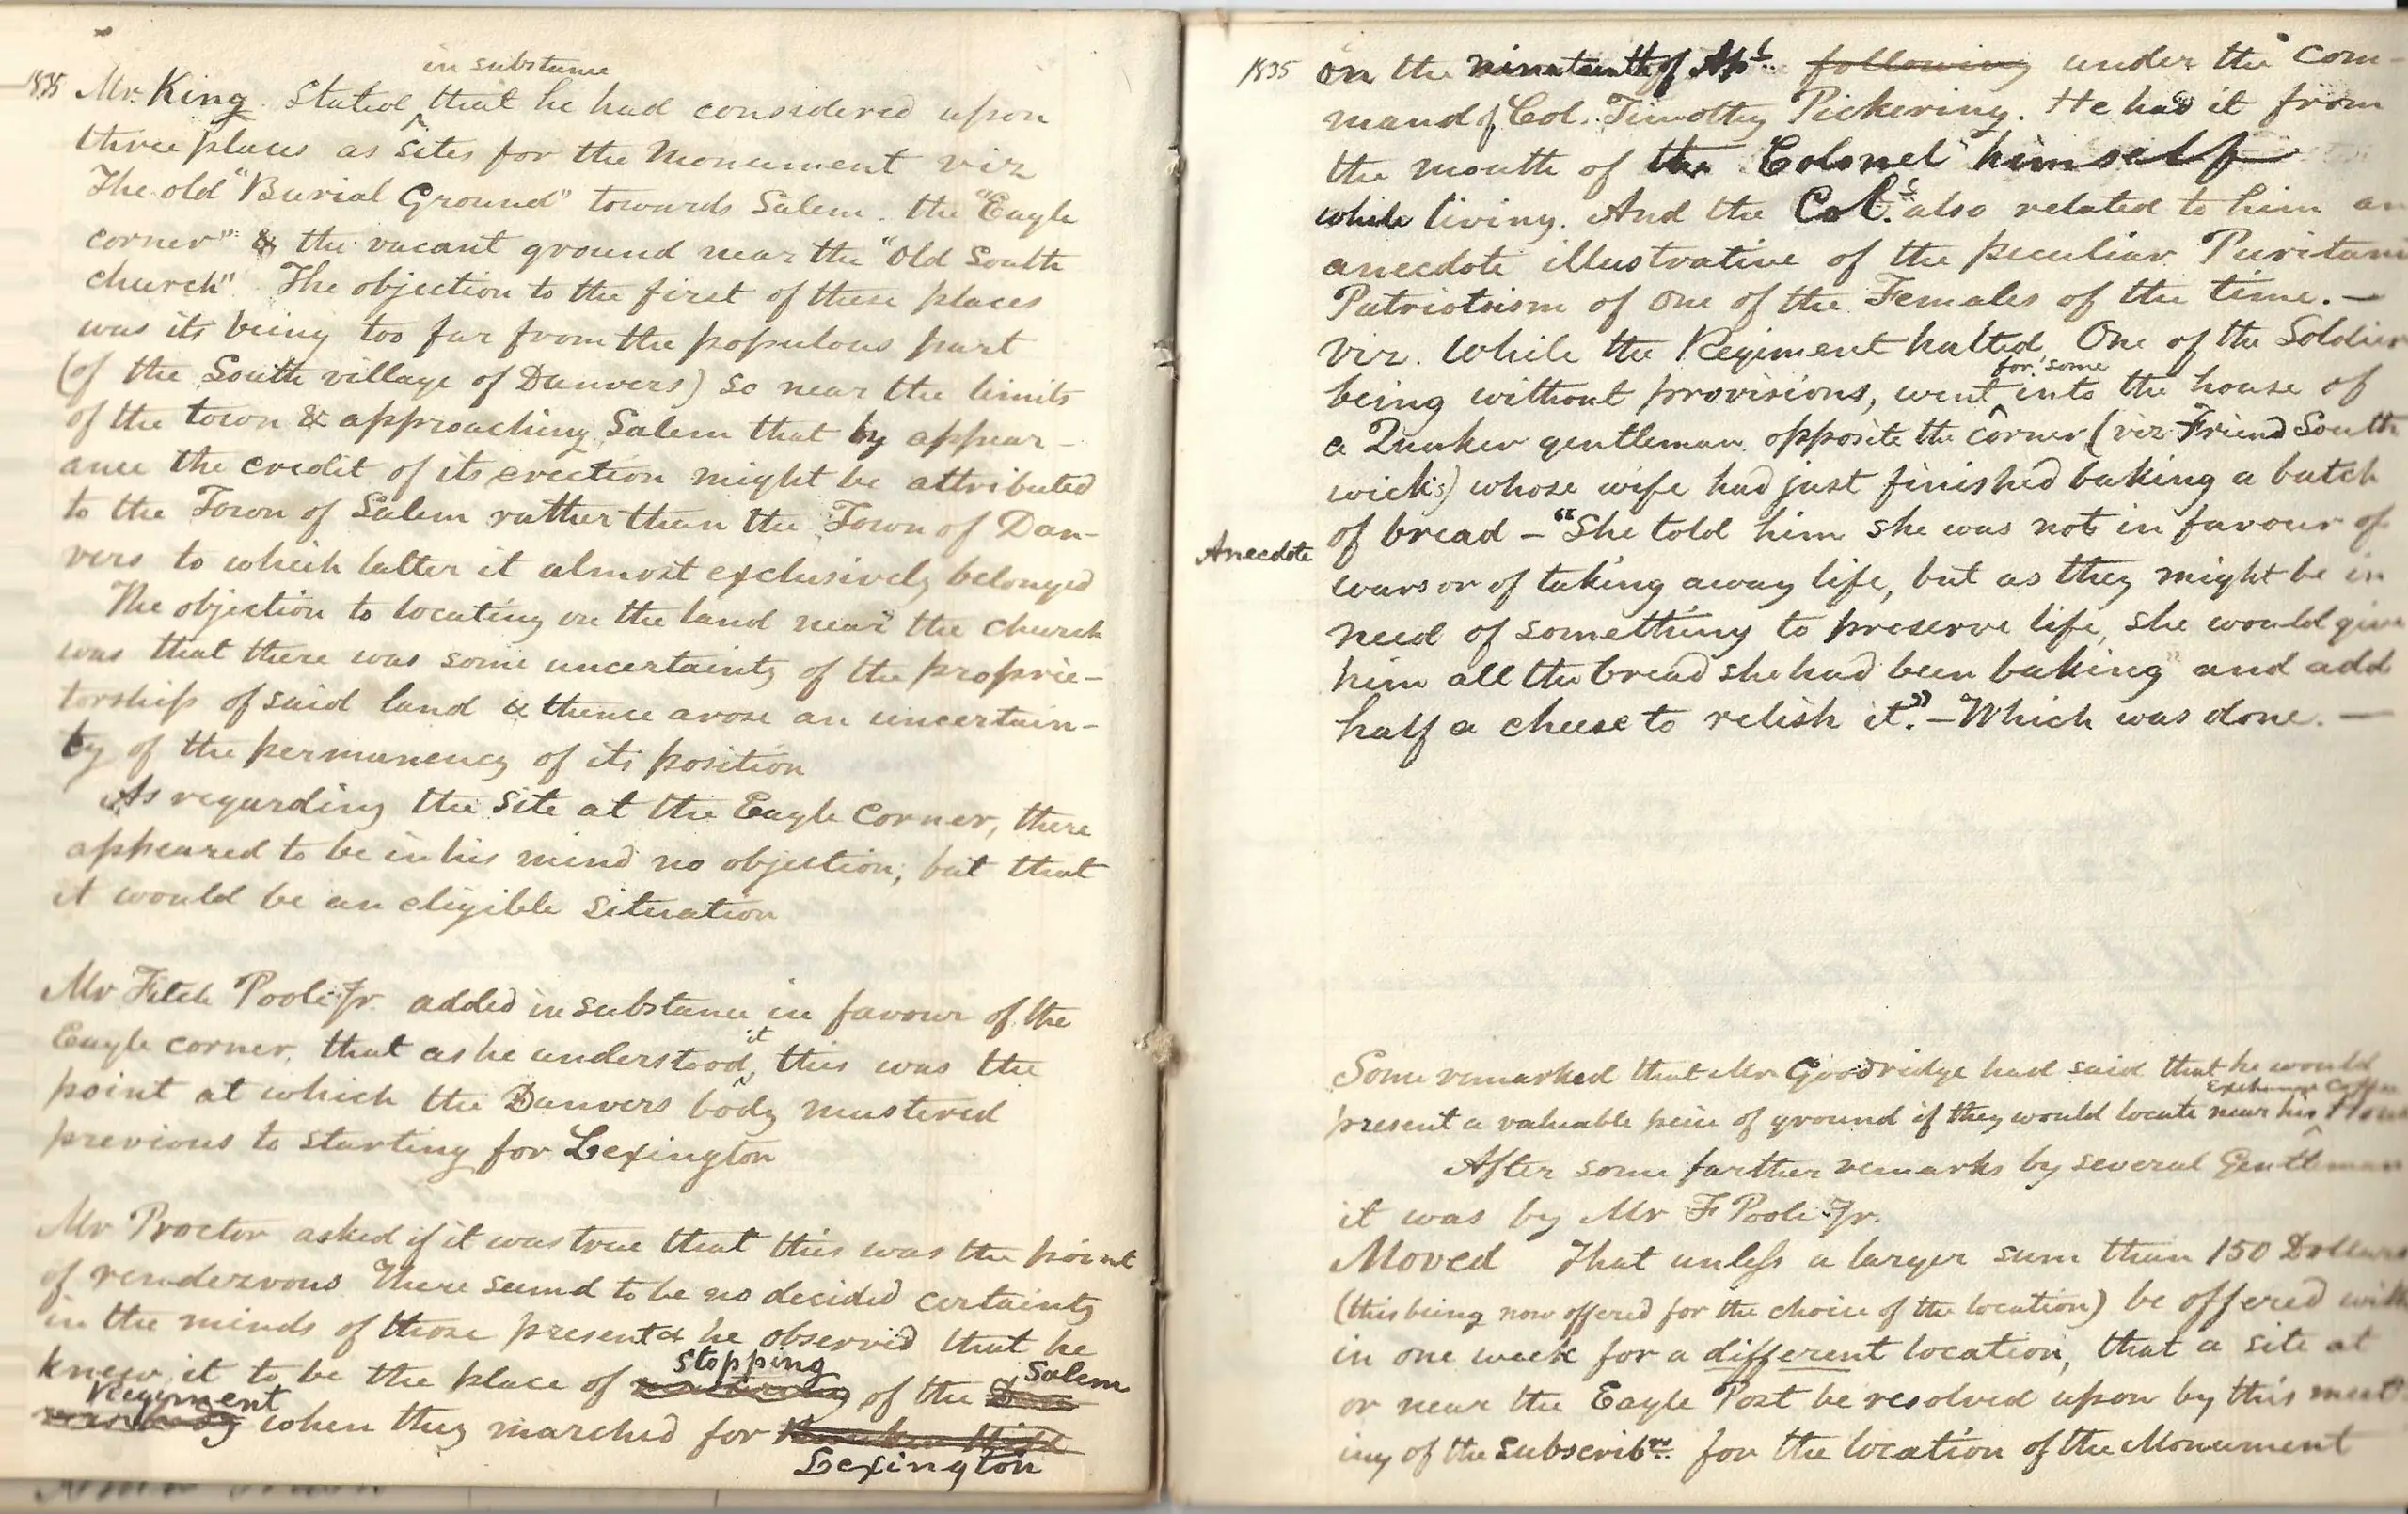 1835 Mr. King stated in substance that he had considered upon
three places as sites for the Monument viz
The old "Burial Ground" towards Salem. the "Eagle
corner" & the vacant ground near the "Old South
church" The objection to the first of these places
was its being too far from the populous part
(of the South village of Danvers) so near the limits
of the town & approaching Salem that by appear-
ance the credit of its erection might be attributed
to the Town of Salem rather than the Town of Dan-
vers to which latter it almost exclusively belonged
The objection to locating on the land near the church
was that there was some uncertainty of the proprie-
torship of said land & thence arose an uncertain-
ty of the permanency of its position
As regarding the site at the Eagle Corner, there
appeared to be in his mind no objection, but that
it would be an eligible situation
Mr Fitch Poole Jr. added in substance in favour of the
Eagle corner, that as he understood it, this was the
point at which the Danvers body mustered
previous to starting for Lexington
Mr Proctor asked if it was true that this was the point
of rendezvous There seemd to be no decided certainty
in the minds of those present & he observed that he
knew it to be the place of stopping of the Salem
Regiment when they marched for
Lexington
1835 on the nineteenth of Apl. following under the com-
mand of Col. Timothy Pickering. He had it from
the mouth of the Colonel himself
while living. And the Col. also related to him an
anecdote illustrative of the peculiar Puritani
Patriotism of One of the Females of the time. —
viz. While the Regiment halted, One of the Soldier
being without provisions, went for some into the house of
a Quaker gentleman opposite the corner (viz Friend South
wick's) whose wife had just finished baking a batch
of bread — "She told him she was not in favour of
Anecdote
wars or of taking away life, but as they might be in
need of something to preserve life, she would give
him all the bread she had been baking" and add
half a cheese to relish it." — Which was done. —
Some remarked that Mr Goodridge had said that he would
present a valuable peice of ground if they would locate near his Exchange Coffee
After some farther remarks by several Gentlemen
it was by Mr F Poole Jr.
Moved That unless a larger sum than 150 Dollars
(this being now offered for the choice of the location) be offered with
in one week for a different location, that a site at
or near the Eagle Post be resolved upon by this meet
ing of the subscribrs. for the location of the Monument